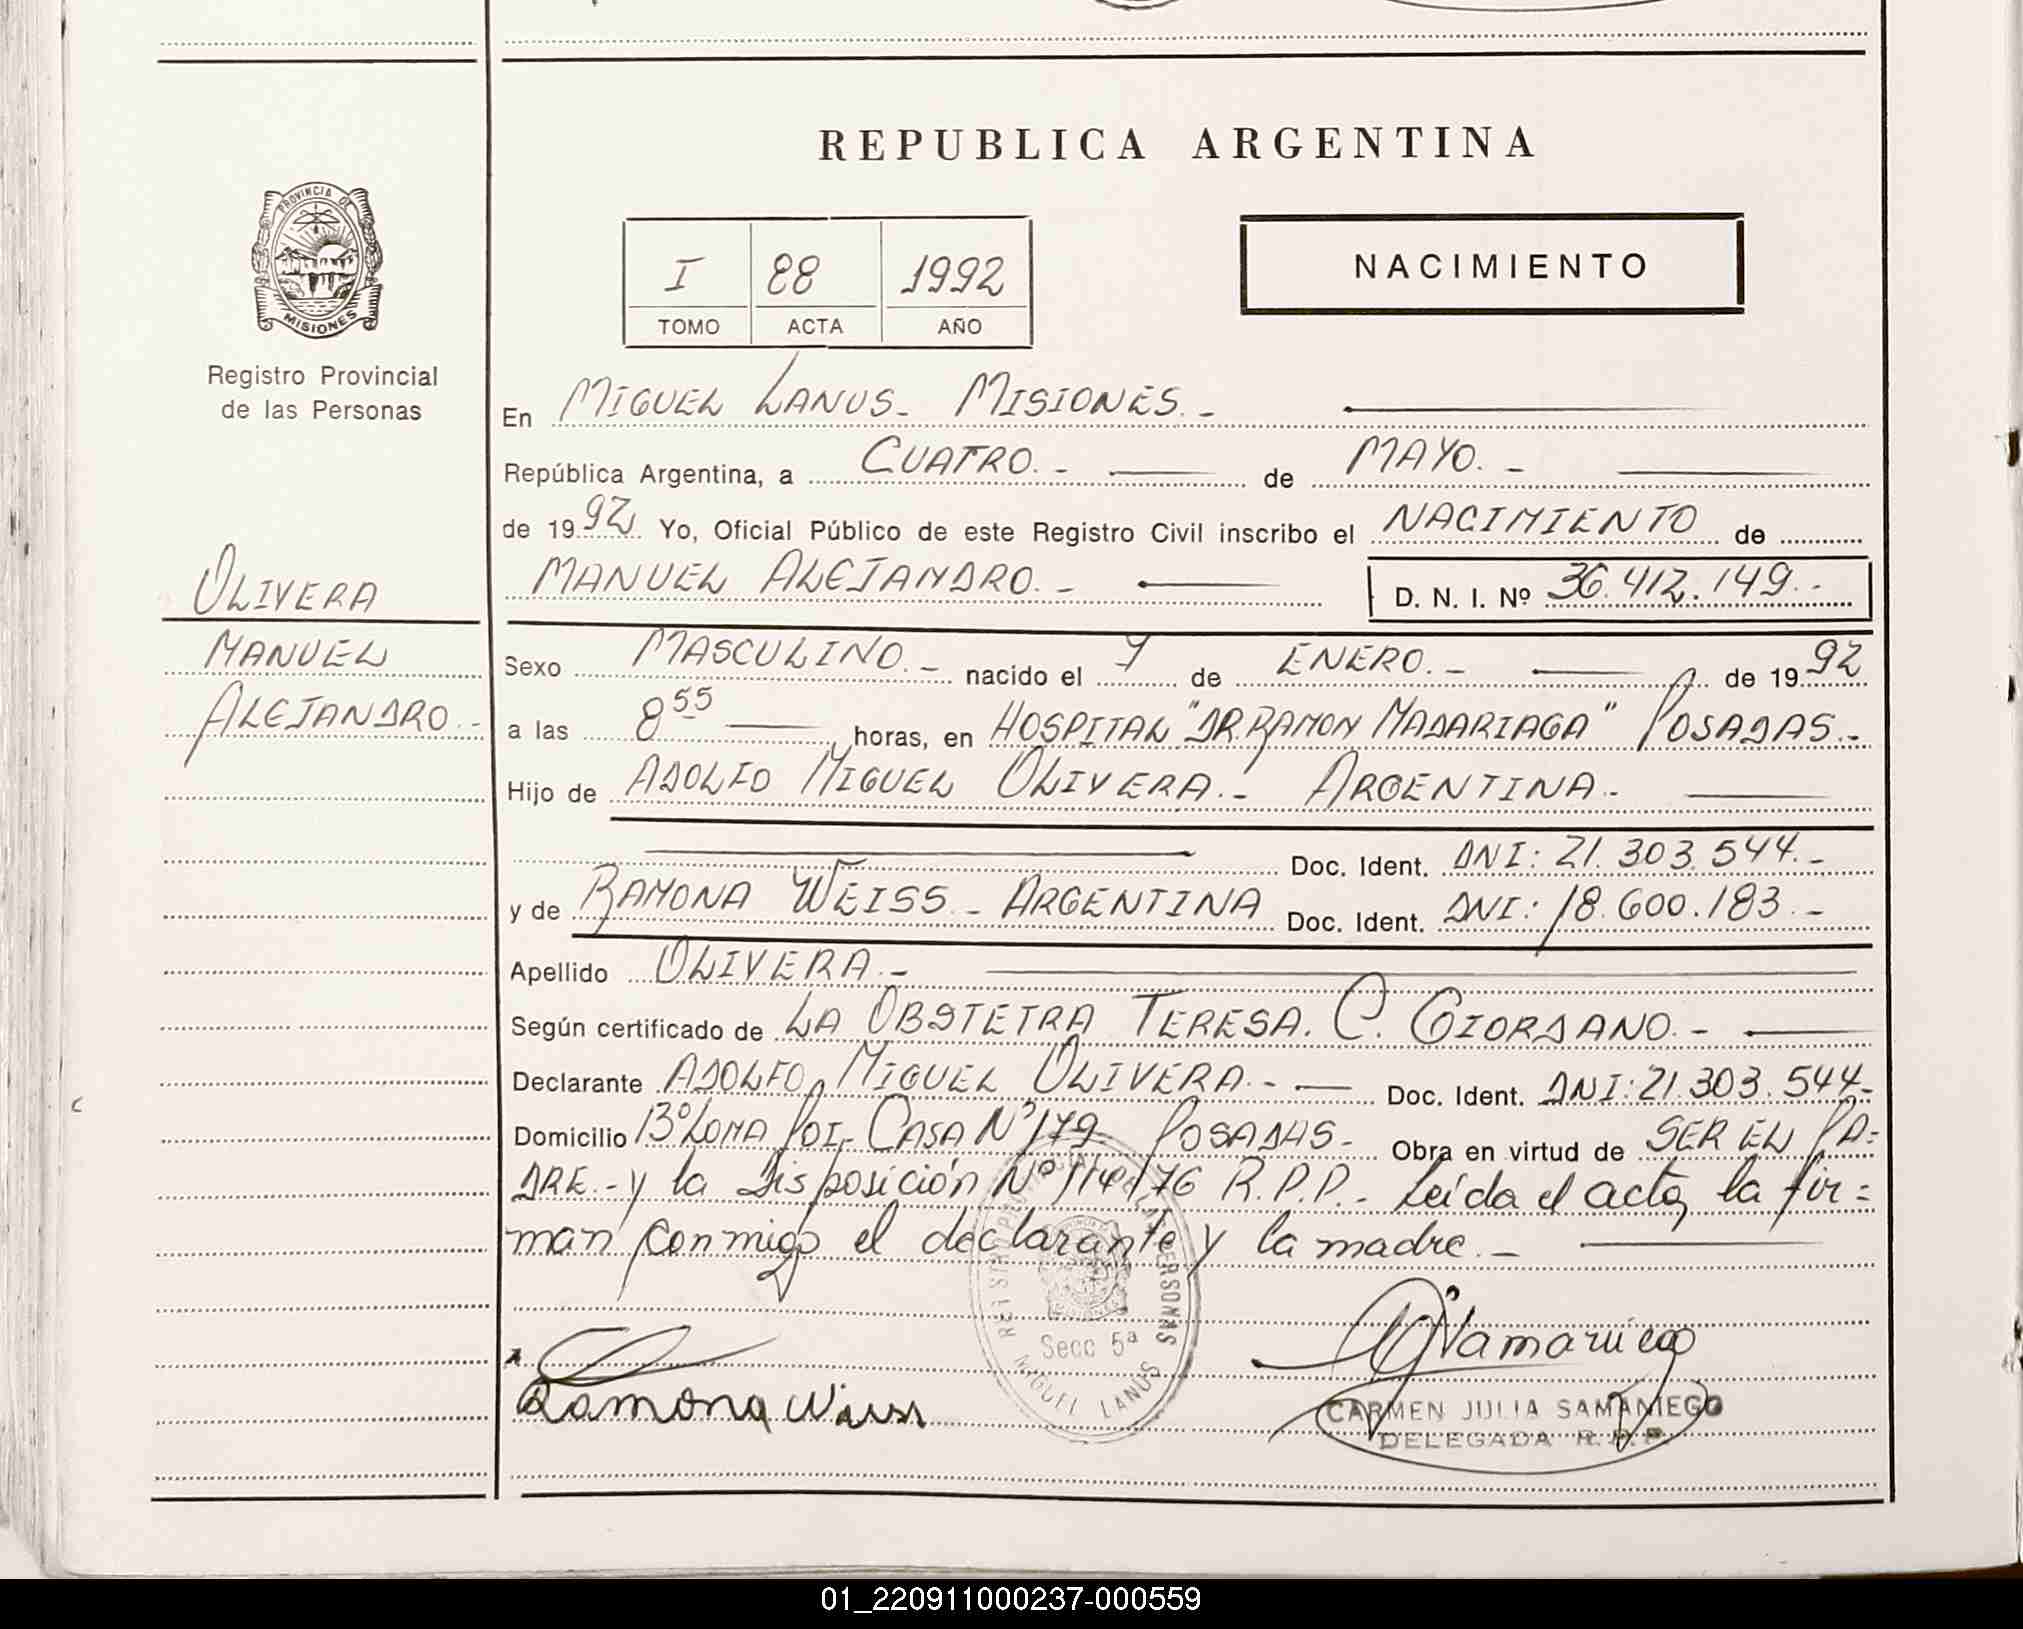 REPUBLICA ARGENTINA
PROVINCIA DE
MISIONES
Registro Provincial
de las Personas
I 88 1992
TOMO ACTA AÑO
NACIMIENTO
En MIGUEL LANUS - MISIONES. -
República Argentina, a CUATRO. - de MAYO. -
de 1992 Yo, Oficial Público de este Registro Civil inscribo el NACIMIENTO de
MANUEL ALEJANDRO. - D. N. I. Nº 36.412.149. -
OLIVERA
MANUEL
ALEJANDRO. -
Sexo MASCULINO. - nacido el 9 de ENERO. - de 1992
a las 8 55 horas, en HOSPITAL "DR. RAMON MADARIAGA" POSADAS. -
Hijo de ADOLFO MIGUEL OLIVERA. - ARGENTINA. -
Doc. Ident. DNI: 21.303.544. -
y de RAMONA WEISS. - ARGENTINA Doc. Ident. DNI: 18.600.183. -
Apellido OLIVERA. -
Según certificado de LA OBSTETRA TERESA. C. GIORDANO. -
Declarante ADOLFO MIGUEL OLIVERA. - Doc. Ident. DNI: 21.303.544. -
Domicilio 13º LOMA POI - CASA Nº 179 POSADAS - Obra en virtud de SER EL PA=
DRE. - y la Disposición Nº 114/76 R.P.P. - Leída el acta, la fir=
man conmigo el declarante y la madre. -
REGISTRO PROVINCIAL DE LAS PERSONAS
Secc 5ª
MIGUEL LANUS
Ramona Weiss
CARMEN JULIA SAMANIEGO
DELEGADA R.P.P.
01_220911000237-000559